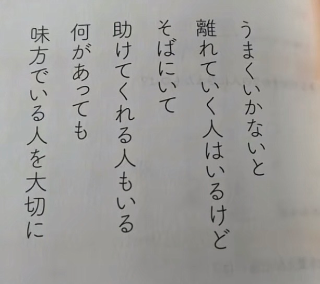 うまくいかないと
離れていく人はいるけど
そばにいて
助けてくれる人もいる
何があっても
味方でいる人を大切に